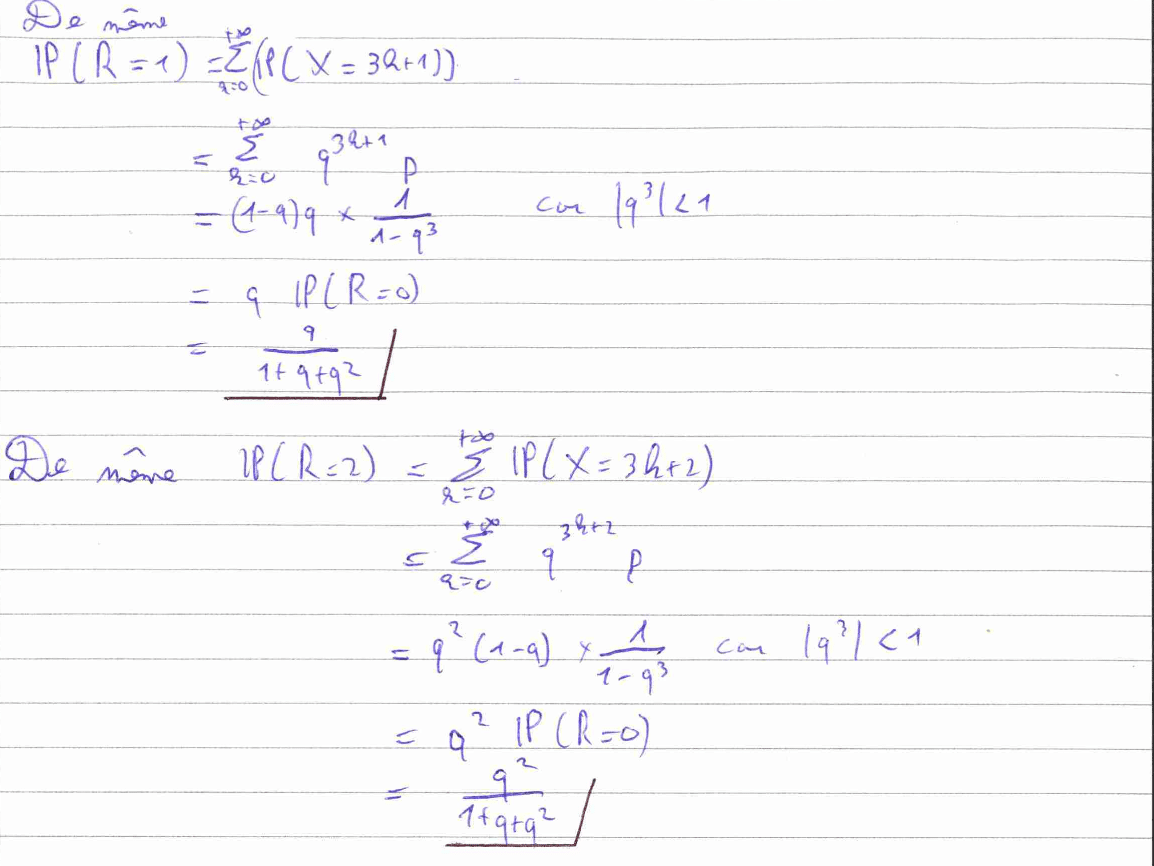 De même
IP(R=1) = \sum_{k=0}^{+\infty} (IP(X=3k+1))
= \sum_{k=0}^{+\infty} q^{3k+1} p
= (1-q)q × \frac{1}{1-q^3} car |q^3|<1
= q IP(R=0)
= \frac{q}{1+q+q^2}
De même IP(R=2) = \sum_{k=0}^{+\infty} IP(X=3k+2)
= \sum_{k=0}^{+\infty} q^{3k+2} p
= q^2 (1-q) × \frac{1}{1-q^3} car |q^3|<1
= q^2 IP(R=0)
= \frac{q^2}{1+q+q^2}